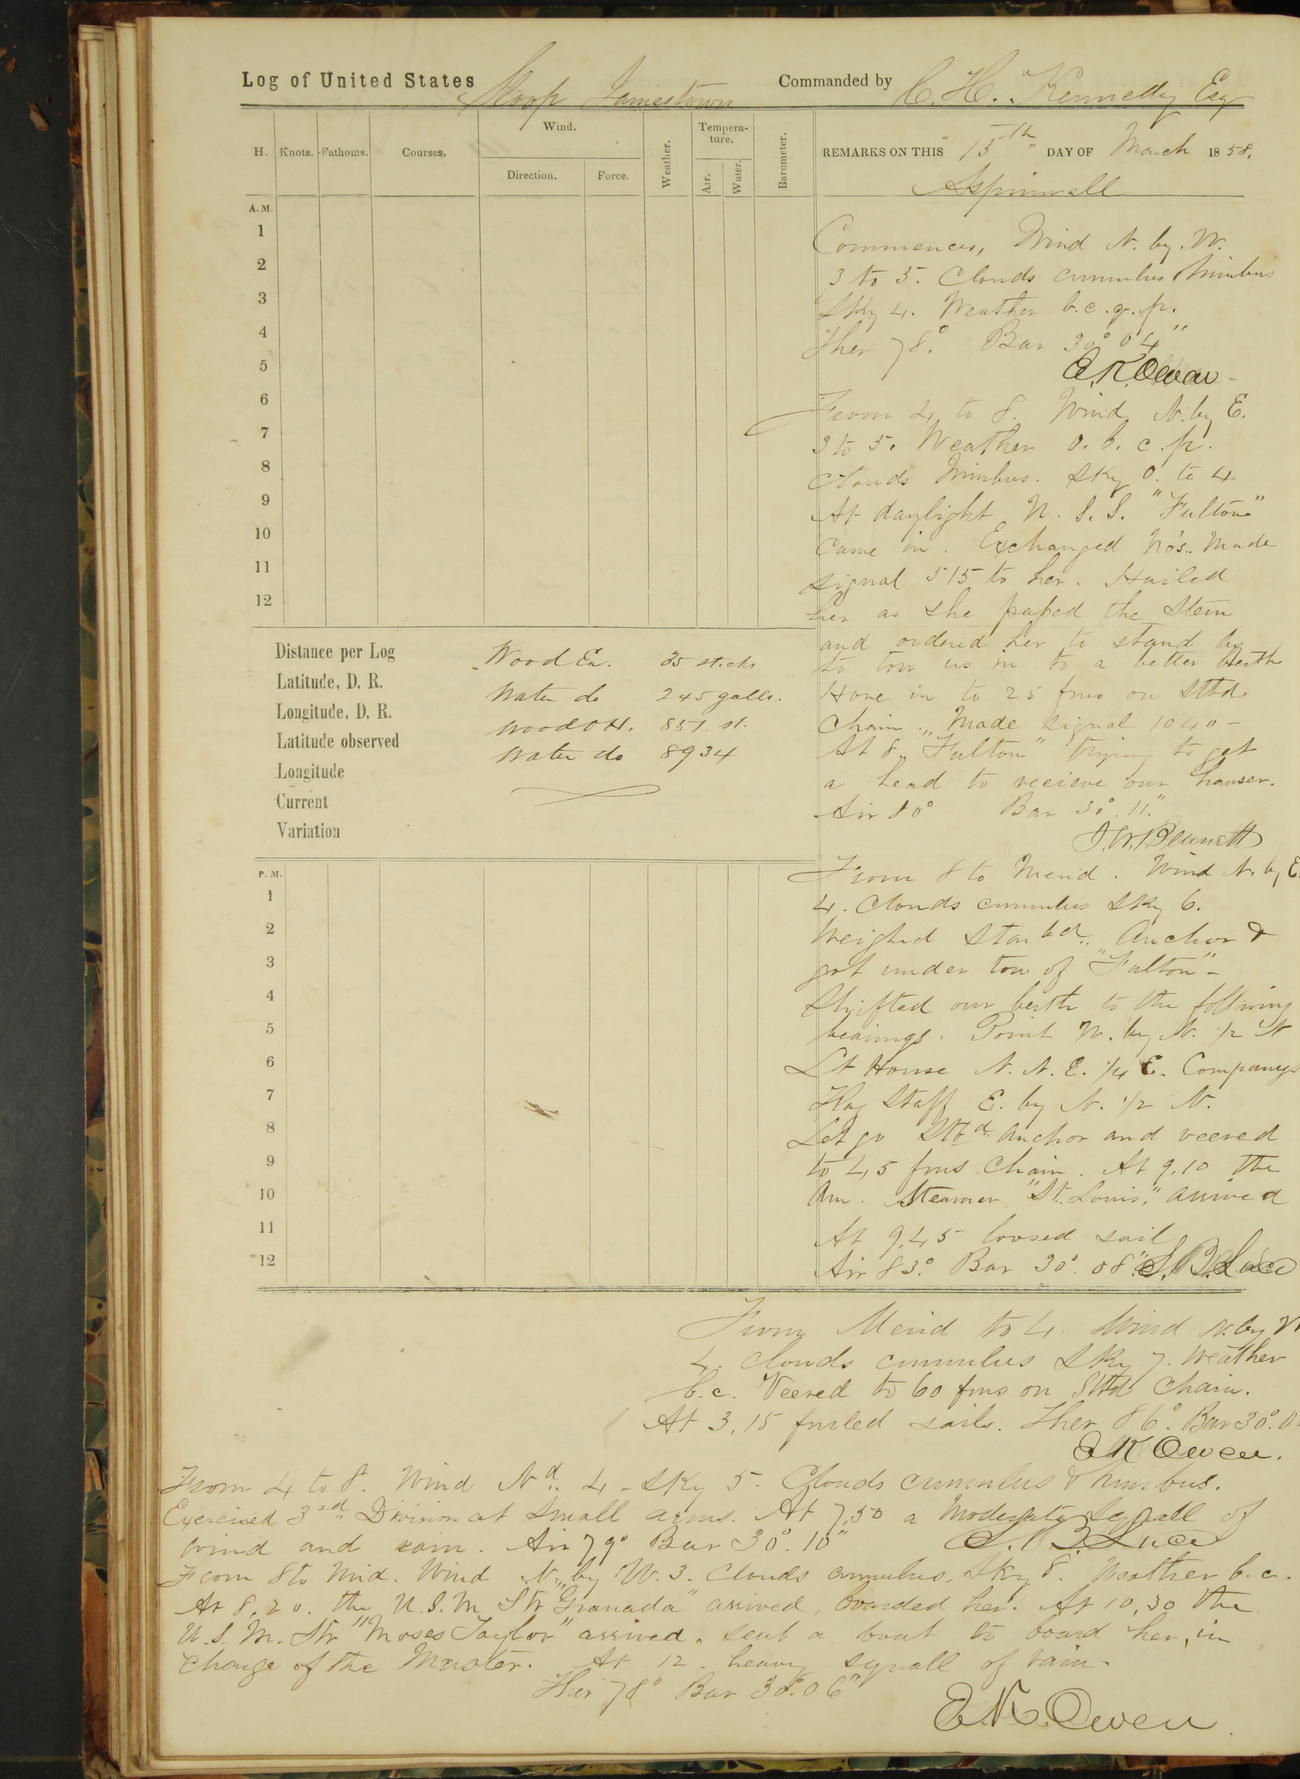 Log of United States Sloop Jamestown Commanded by C. H. Kennedy Esq
H. Knots. Fathoms. Courses. Wind. Direction. Force. Weather. Tempera-ture. Air. Water. Barometer.
REMARKS ON THIS 15th DAY OF March 1858.
Aspinwall
A.M.
1
2
3
4
5
6
7
8
9
10
11
12
Commences, Wind N. by. W.
3 to 5. Clouds cumulus & nimbus
Sky 4. Weather b.c.q.p.
Ther 78° Bar 30°04"
E.K.Owen
From 4 to 8. Wind N. by E.
3 to 5. Weather o. b. c. p.
Clouds Nimbus. Sky 0. to 4
At daylight U. S. S. "Fulton"
Came in. Exchanged No's. Made
signal 515 to her. Hailed
her as she passed the stern
and ordered her to stand by
to tow us in to a better berth
Hove in to 25 fms on Stbd
Chain. Made signal 1040 -
At 8. "Fulton" trying to get
a head to recieve our hauser.
Air 80° Bar 30°.11."
J.W.Bennett
Distance per Log
Latitude, D. R.
Longitude, D. R.
Latitude observed
Longitude
Current
Variation
Wood Ex. 35 sticks
Water do 245 galls.
Wood O H. 851. st.
Water do 8934
P. M.
1
2
3
4
5
6
7
8
9
10
11
12
From 8 to Merid. Wind N. by E.
4. Clouds cumulus Sky 6.
Weighed Starbd. Anchor &
got under tow of "Fulton" -
Shifted our berth to the following
bearings. Point W. by N. 1/2 N
Lt House N. N. E. 1/4 E. Companys
Flag Staff E. by N. 1/2 N.
Let go Stbd. Anchor and veered
to 45 fms Chain. At 9.10 the
Am. Steamer "St. Louis," arrived
At 9.45 loosed sail
Air 83° Bar 30°.08" S.B.Luce
From Merid to 4. Wind N. by W
4. Clouds cumulus Sky 7. Weather
b.c. Veered to 60 fms on Stbd Chain.
At 3,15 furled sails. Ther 86° Bar 30°.0
E K Owen.
From 4 to 8. Wind Nd. 4 - Sky 5. Clouds cumulus & nimbus.
Exercised 3rd Division at small arms. At 7,50 a moderate squall of
wind and rain. Air 79° Bar 30°.10" S.B.Luce
From 8 to Mid. Wind N. by W. 3. Clouds cumulus. Sky 8. Weather b.c.
At 8.20. the U.S.M. Str "Granada" arrived, boarded her. At 10,30 the
U.S.M. Str "Moses Taylor" arrived. sent a boat to board her, in
Charge of the Master. At 12. heavy squall of rain.
Ther 78° Bar 30°.06"
E.K.Owen